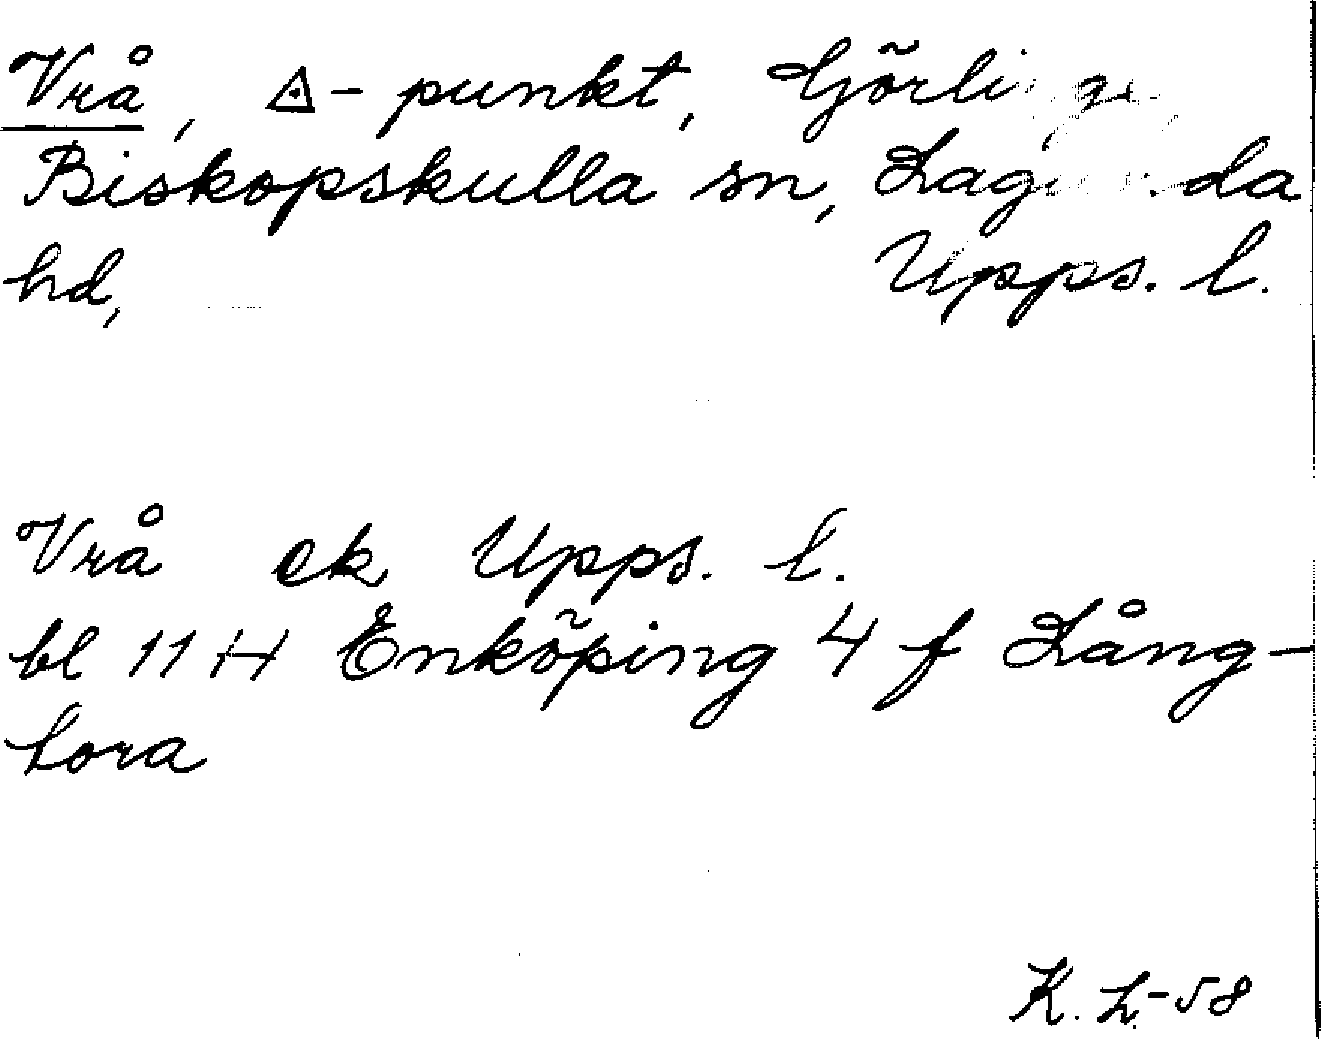 Vrå, △-punkt,
Biskopskulla sn, Lagunda
hd, Upps. l.
Vrå ek Upps. l.
bl 11 H Enköping 4 f Lång-
tora
K. L-58